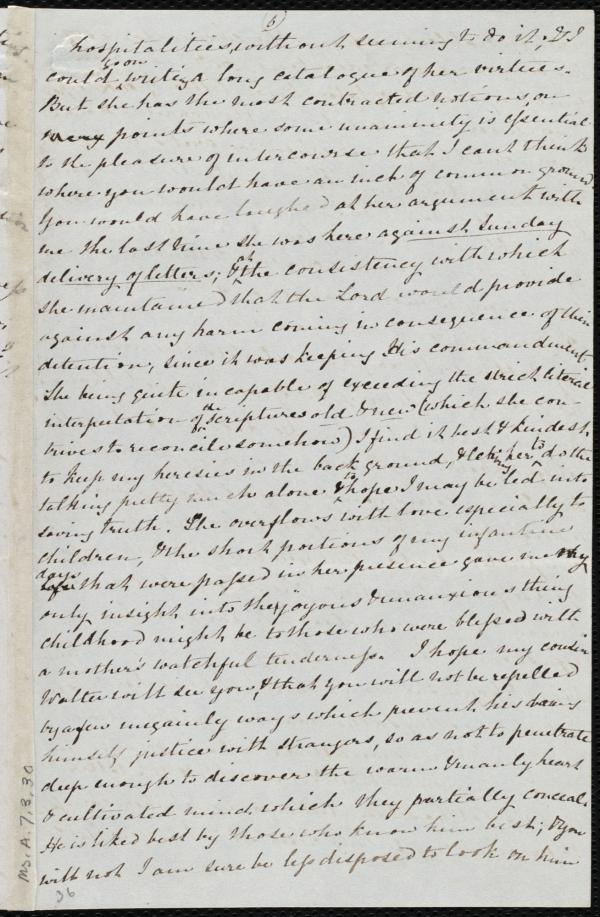 (6)
hospitalities, without seeming to do it; & I
could soon write a long catalogue of her virtues.
But she has the most contracted notions, on
many points where some unanimity is essential
to the pleasure of intercourse that I cant think
where you would have an inch of common ground.
You would have laughed at her argument with
me the last time she was here against Sunday
delivery of letters; & at the consistency with which
she maintained that the Lord would provide
against any harm coming in consequence of their
detention, since it was keeping His commandment.
She being quite incapable of exceeding the strict literal
interpretation of the Scriptures old & new (which she con-
trives to reconcile somehow) I find it best & kindest
to keep my heresies in the back ground, & letting her to do the
talking pretty much alone & to hope I may be led into
saving truth. She overflows with love especially to
children, & the short portions of my infantine
days that were passed in her presence gave me my
only insight into the joyous & unanxious thing
childhood might be to those who were blessed with
a mother's watchful tenderness. I hope my cousin
Walter will see you, & that you will not be repelled
by a few ungainly ways which prevent his doing
himself justice with strangers, so as not to penetrate
deep enough to discover the warm & manly heart
& cultivated mind, which they partially conceal.
He is liked best by those who know him best; & you
will not I am sure be less disposed to look on him
MS. A. 7. 3. 30
36